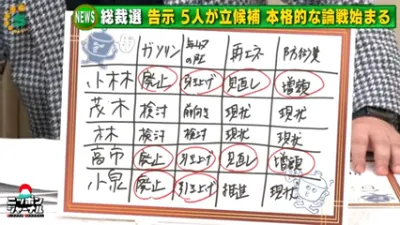 NEWS 総裁選 告示 5人が立候補 本格的な論戦始まる
ガソリン 年収の壁 再エネ 防衛費
小林 廃止 引上げ 見直し 増額
茂木 検討 前向き 現状 現状
林 検討 検討 現状 現状
高市 廃止 引上げ 見直し 増額
小泉 廃止 引上げ 推進 現状